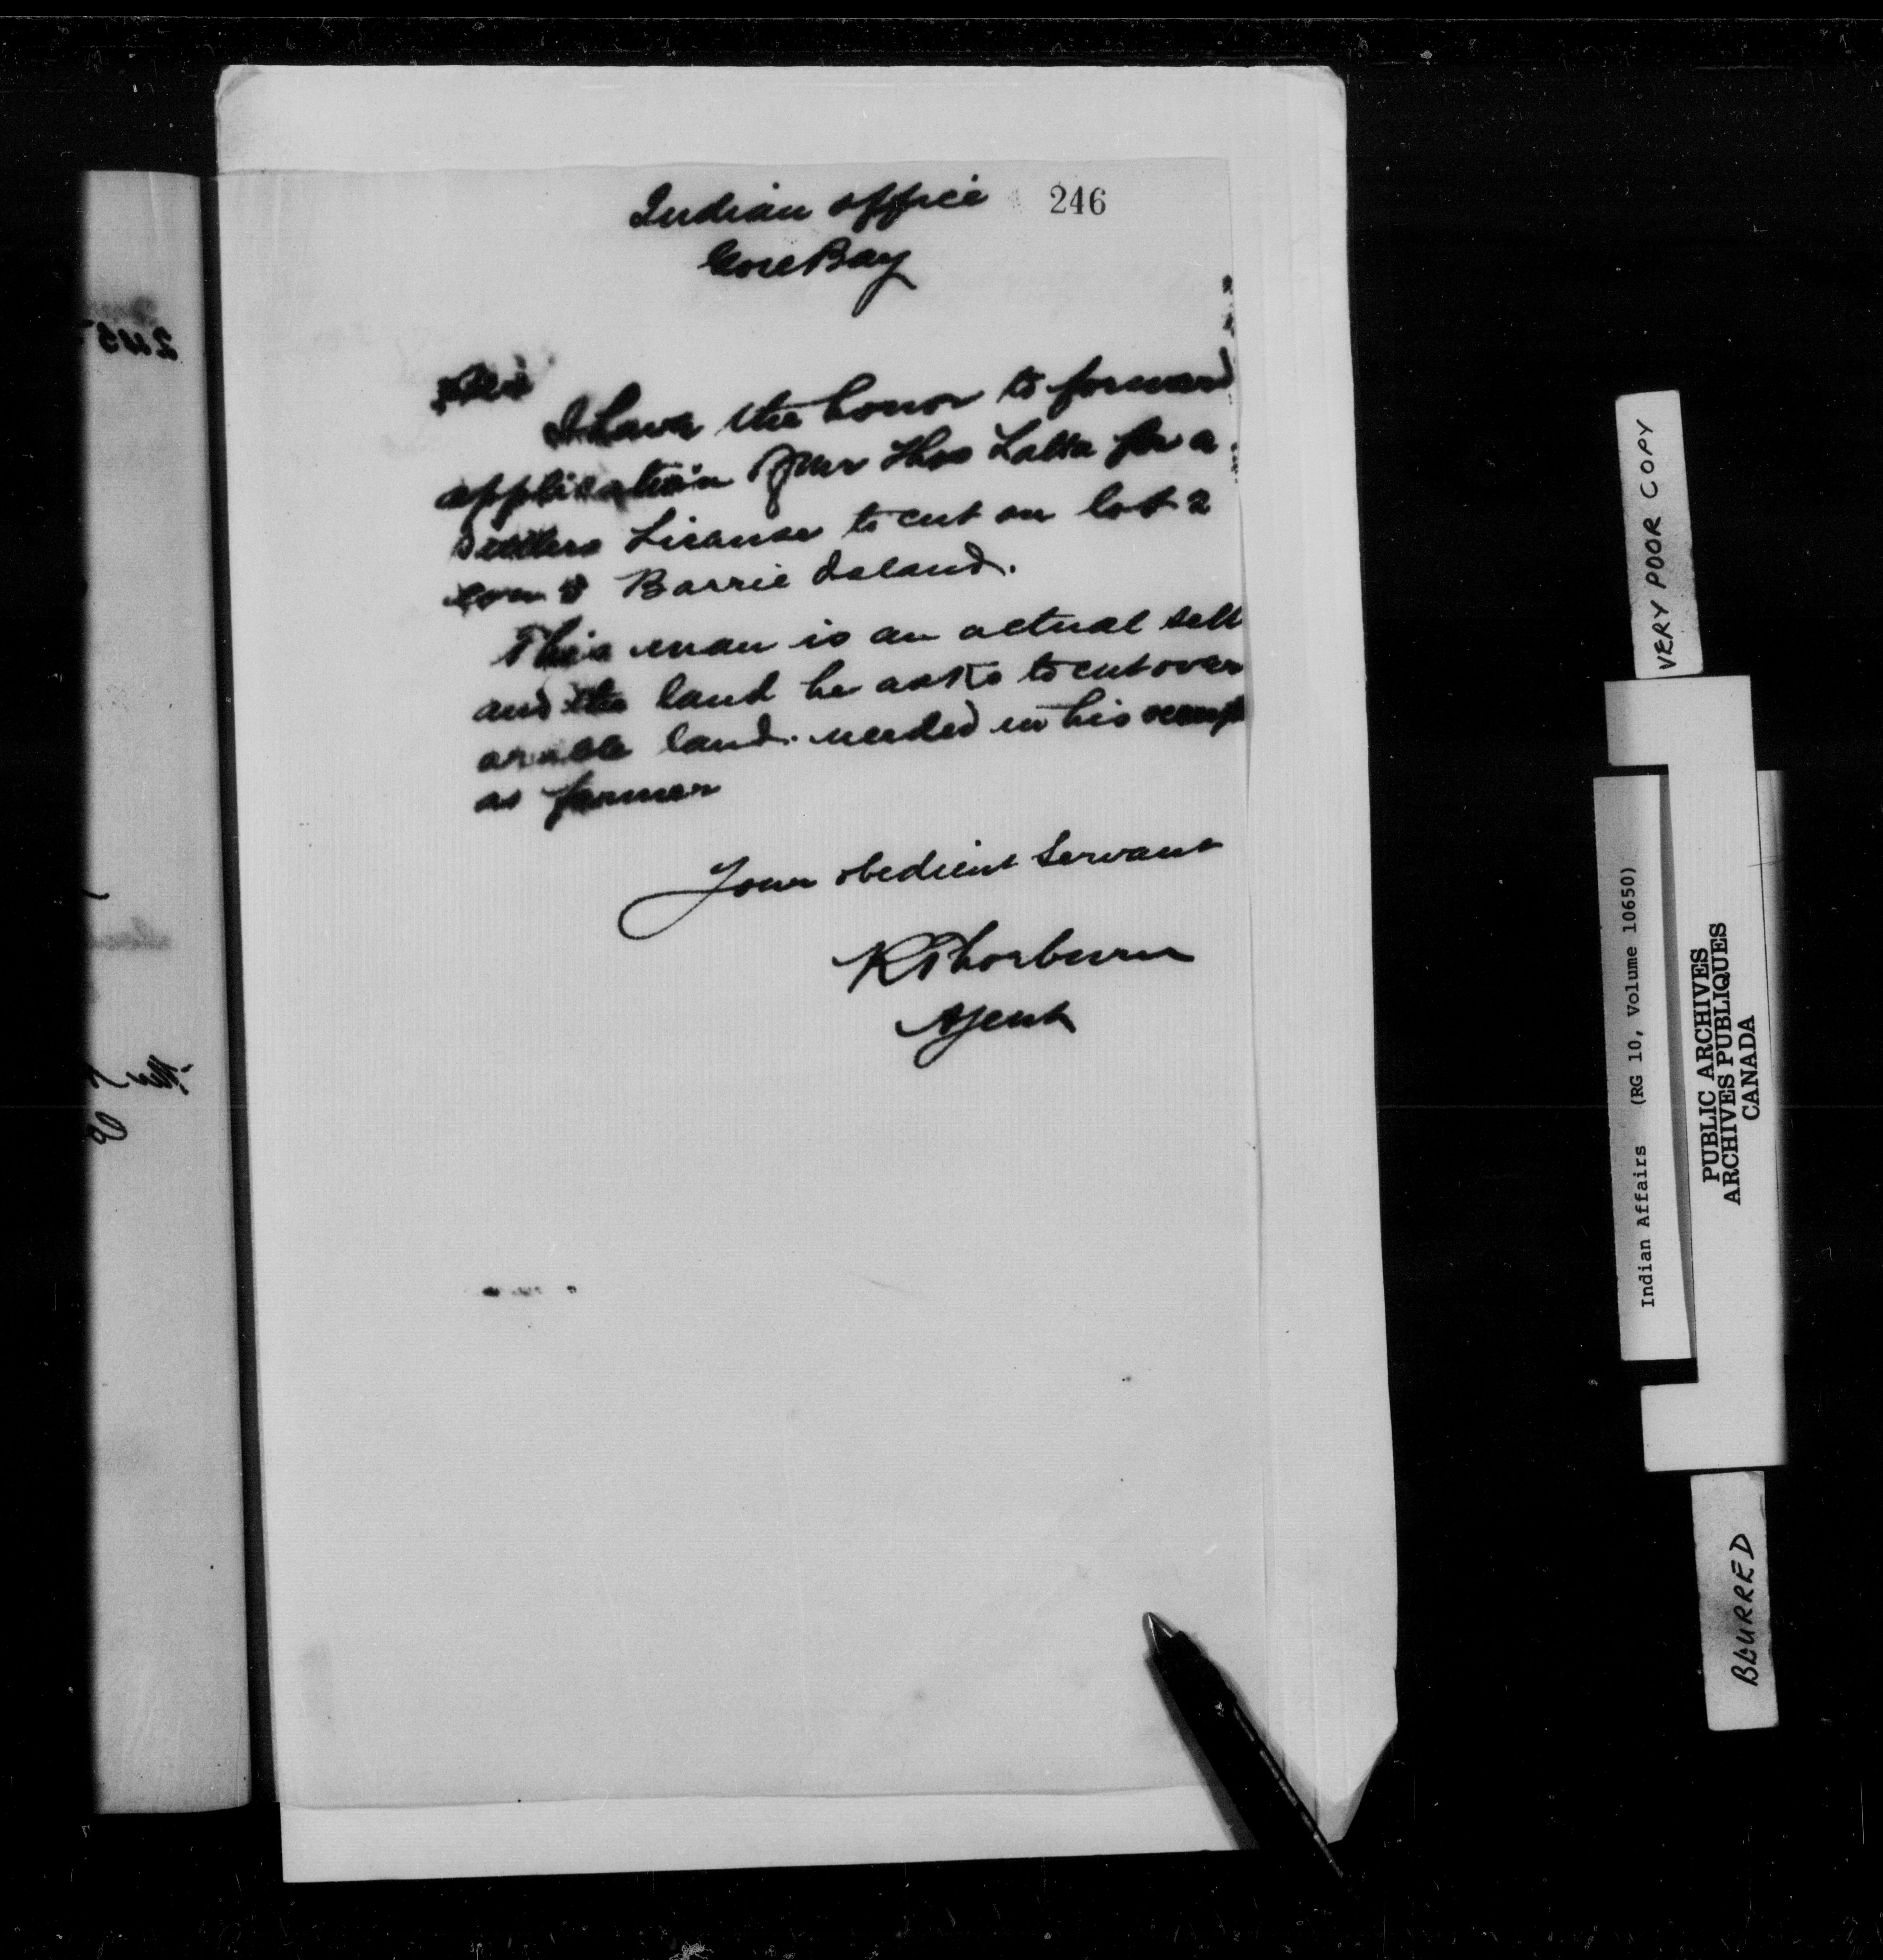 Indian office 246
Gore Bay
Sir
I have the honor to forward
application of Mr Thos Latta for a
Settlers License to cut on lot 2
con 8 Barrie Island.
This man is an actual sett
and the land he asks to cut over
arable land. needed in his occup
as farmer
Your obedient Servant
RThorburn
Agent
VERY POOR COPY
Indian Affairs (RG 10, Volume 10650)
PUBLIC ARCHIVES
ARCHIVES PUBLIQUES
CANADA
BLURRED